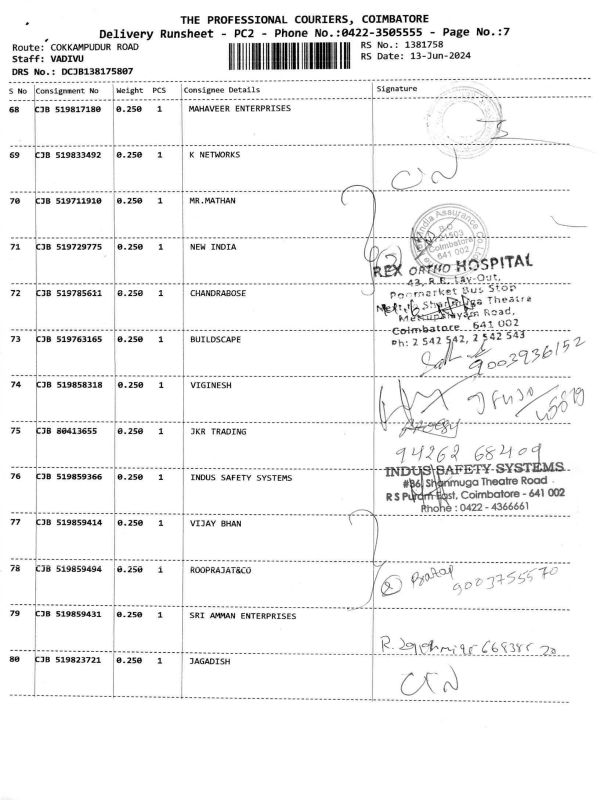 THE PROFESSIONAL COURIERS, COIMBATORE
Delivery Runsheet - PC2 - Phone No.:0422-3505555 - Page No.:7
Route: COKKAMPUDUR ROAD
RS No.: 1381758
Staff: VADIVU
RS Date: 13-Jun-2024
DRS No.: DCJB138175807
S No Consignment No Weight PCS Consignee Details Signature
68 CJB 519817180 0.250 1 MAHAVEER ENTERPRISES
69 CJB 519833492 0.250 1 K NETWORKS
70 CJB 519711910 0.250 1 MR.MATHAN
India Assurance Co.
Coimbatore
641 002
71 CJB 519729775 0.250 1 NEW INDIA
REX ORTHO HOSPITAL
43, R.R. Lay-Out,
Poomarket Bus Stop
72 CJB 519785611 0.250 1 CHANDRABOSE
Shanmuga Theatre
Mettupalayam Road,
Coimbatore 641 002
Ph: 2 542 542, 2 542 543
73 CJB 519763165 0.250 1 BUILDSCAPE
9003936152
74 CJB 519858318 0.250 1 VIGINESH
75 CJB 80413655 0.250 1 JKR TRADING
94262 68409
76 CJB 519859366 0.250 1 INDUS SAFETY SYSTEMS
INDUS SAFETY SYSTEMS
#86, Shanmuga Theatre Road
R S Puram East, Coimbatore - 641 002
Phone : 0422 - 4366661
77 CJB 519859414 0.250 1 VIJAY BHAN
78 CJB 519859494 0.250 1 ROOPRAJAT&CO
Pratap
9003755570
79 CJB 519859431 0.250 1 SRI AMMAN ENTERPRISES
80 CJB 519823721 0.250 1 JAGADISH